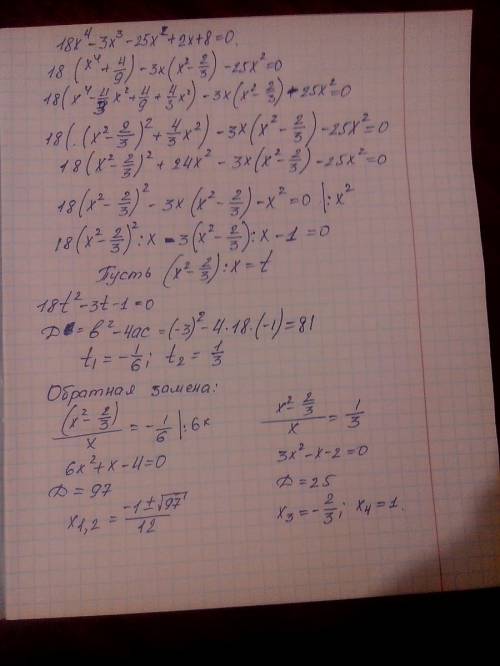 18x⁴-3x³-25x²+2x+8=0.
18(x⁴+4/9)-3x(x²-2/3)-25x²=0
18(x⁴-4/3x²+4/9+4/3x²)-3x(x²-2/3)-25x²=0
18((x²-2/3)²+4/3x²)-3x(x²-2/3)-25x²=0
18(x²-2/3)²+24x²-3x(x²-2/3)-25x²=0
18(x²-2/3)²-3x(x²-2/3)-x²=0 |:x²
18(x²-2/3)²:x-3(x²-2/3):x-1=0
Пусть (x²-2/3):x=t
18t²-3t-1=0
D=b²-4ac=(-3)²-4·18·(-1)=81
t₁=-1/6; t₂=1/3
Обратная замена:
(x²-2/3)/x=-1/6 |:6x
6x²+x-4=0
D=97
x₁,₂=(-1±√97)/12
(x²-2/3)/x=1/3
3x²-x-2=0
D=25
x₃=-2/3; x₄=1.